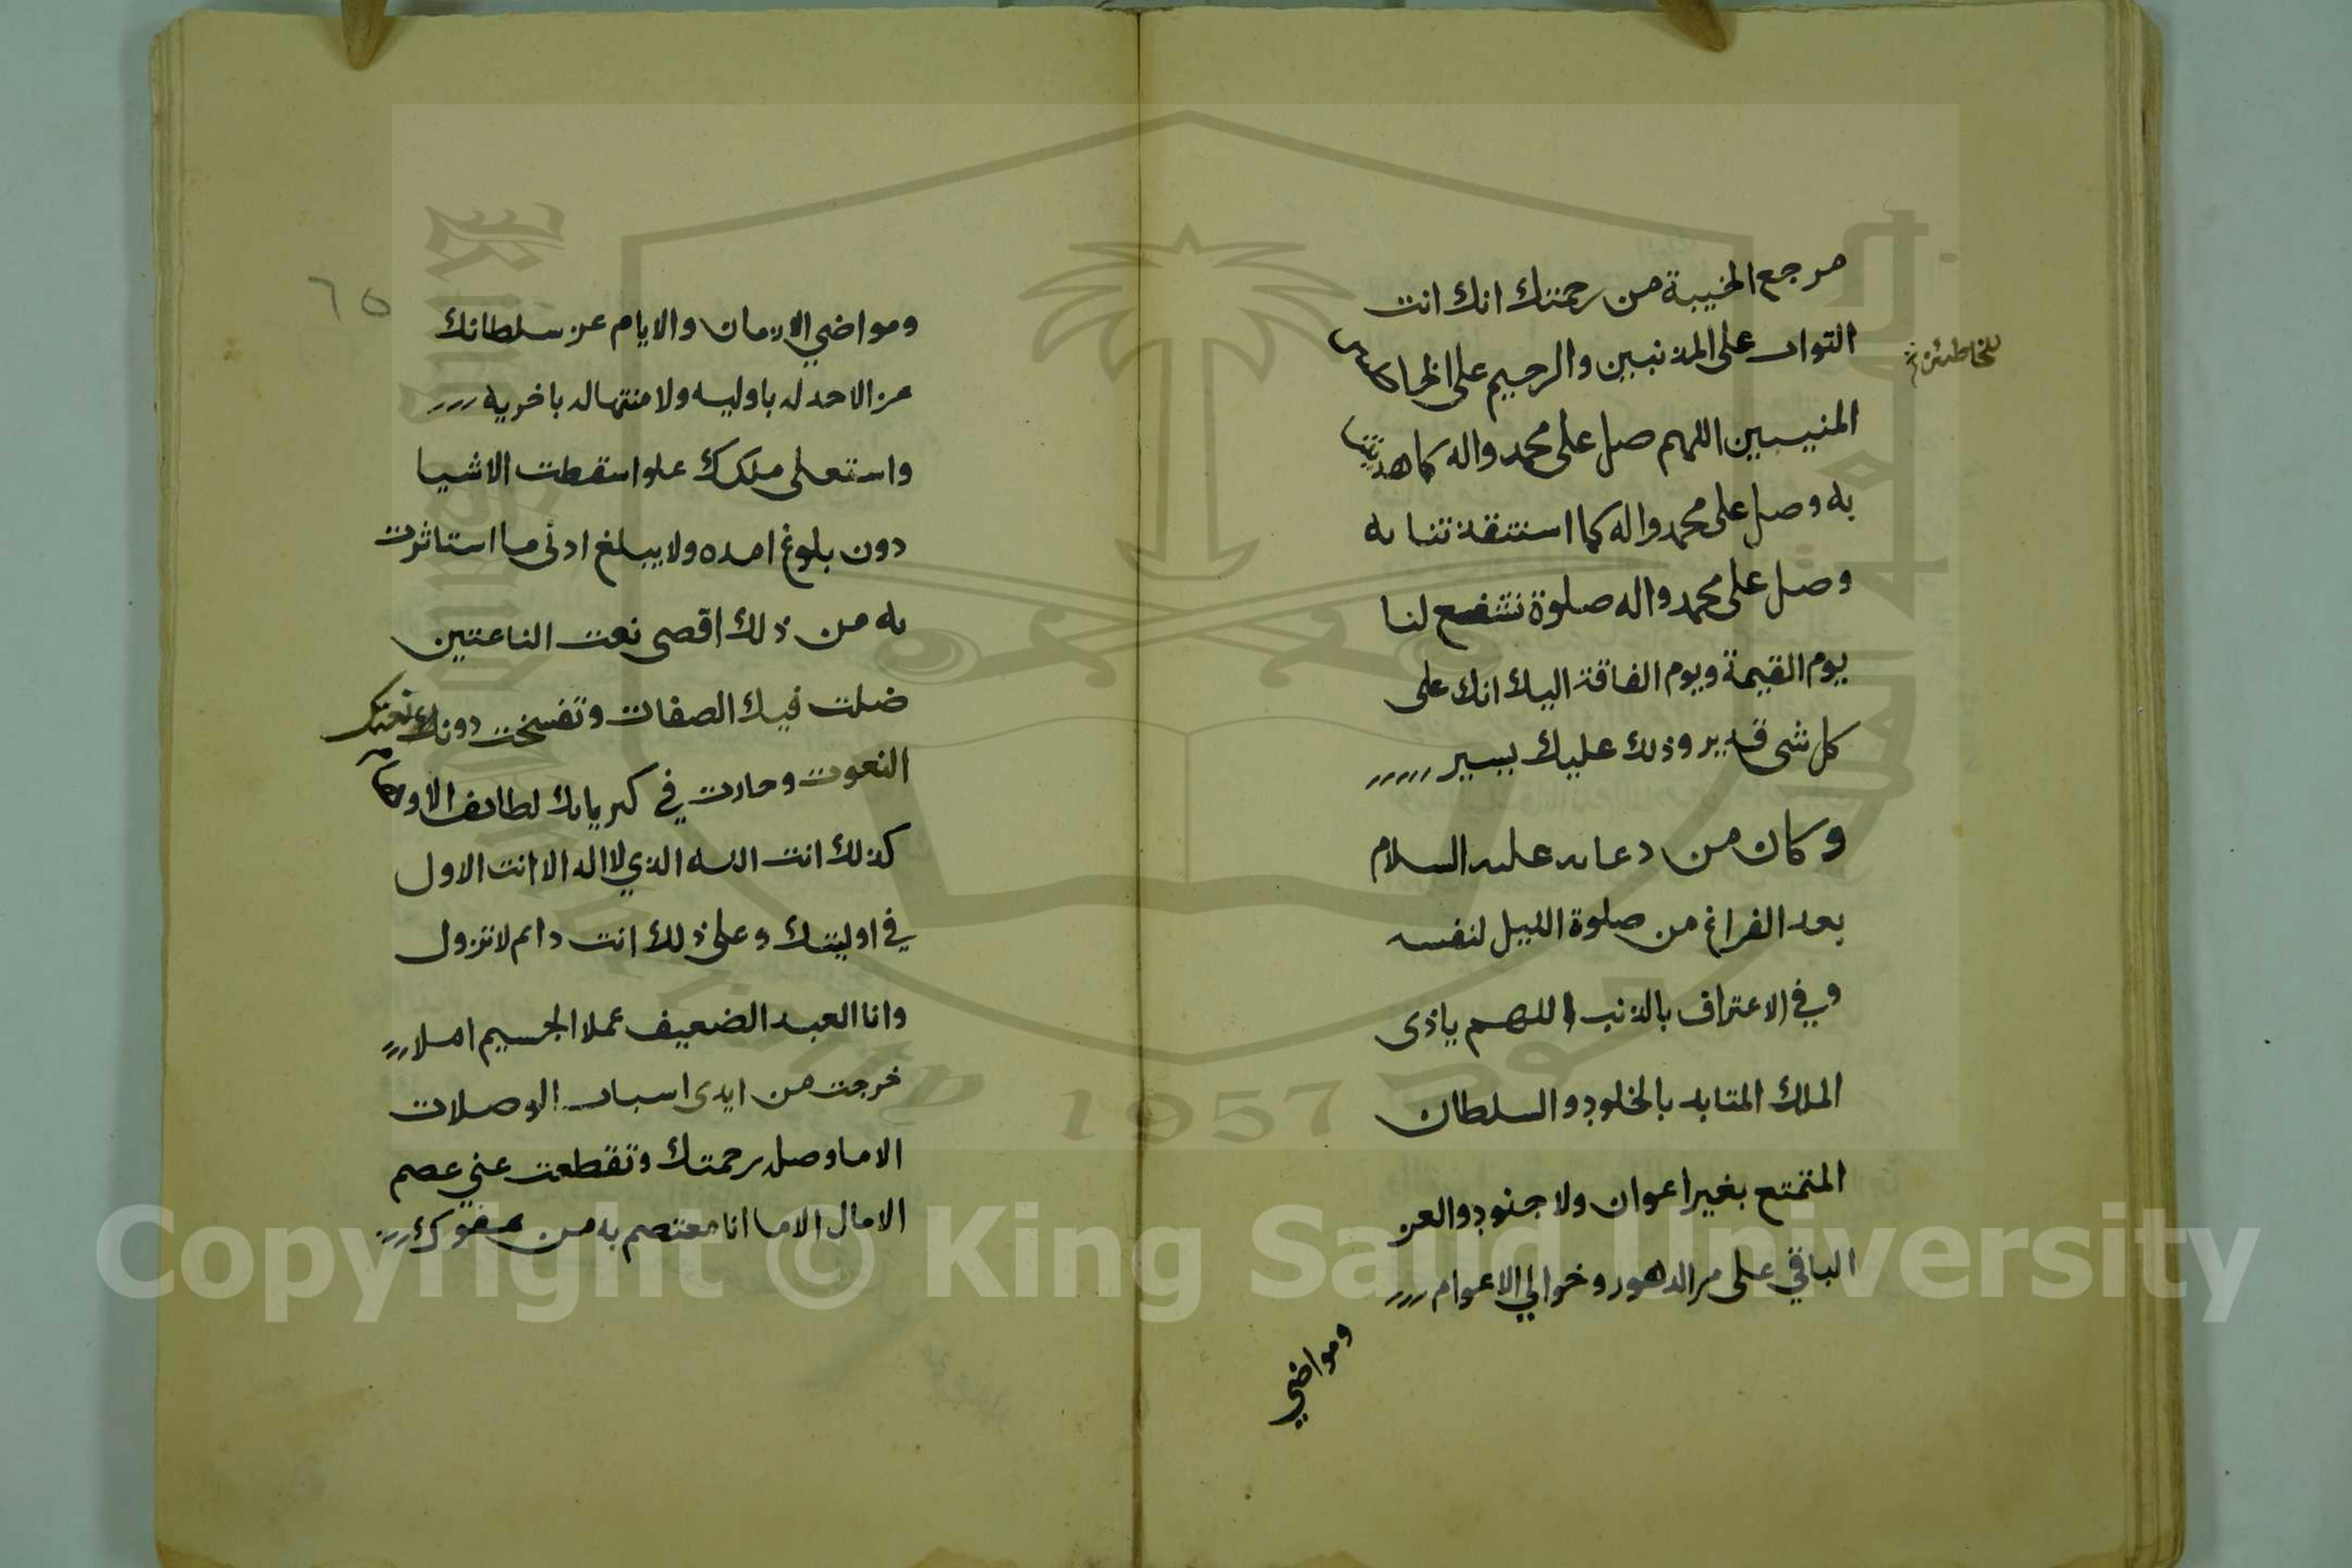 مرجع الخيبة من رحمتك انك انت
التواب على المذنبين والرحيم على
للخاطئين
المنيبين اللهم صل على محمد واله كما هديتنا
به وصل على محمد واله كما استنقذتنا به
وصل على محمد واله صلوة تشفع لنا
يوم القيمة ويوم الفاقة اليك انك على
كل شى قدير وذلك عليك يسير
وكان من دعايه عليه السلام
بعد الفراغ من صلوة الليل لنفسه
وفي الاعتراف بالذنب اللهم ياذى
الملك المتابد بالخلود والسلطان
الممتنع بغير اعوان ولا جنود والعز
الباقي على مر الدهور وخوالي الاعوام
ومواضي
٦٥
ومواضي الازمان والايام عز سلطانك
عز الاحد له باوليه ولا منتها له باخريه
واستعلى ملكك علوا سقطت الاشيا
دون بلوغ امده ولا يبلغ ادنى ما استاثرت
به من ذلك اقصى نعت الناعتين
ضلت فيك الصفات وتفسخت دونك
النعوت وحارت في كبريايك لطايف الاوهام
كذلك انت الله الذي لا اله الا انت الاول
في اوليتك وعلى ذلك انت دايم لا تزول
وانا العبد الضعيف عملا الجسيم املا
خرجت من ايدى اسباب الوصلات
الا ما وصله رحمتك وتقطعت عني عصم
الامال الا ما انا معتصم به من عفوك
Copyright © King Saud University
1957